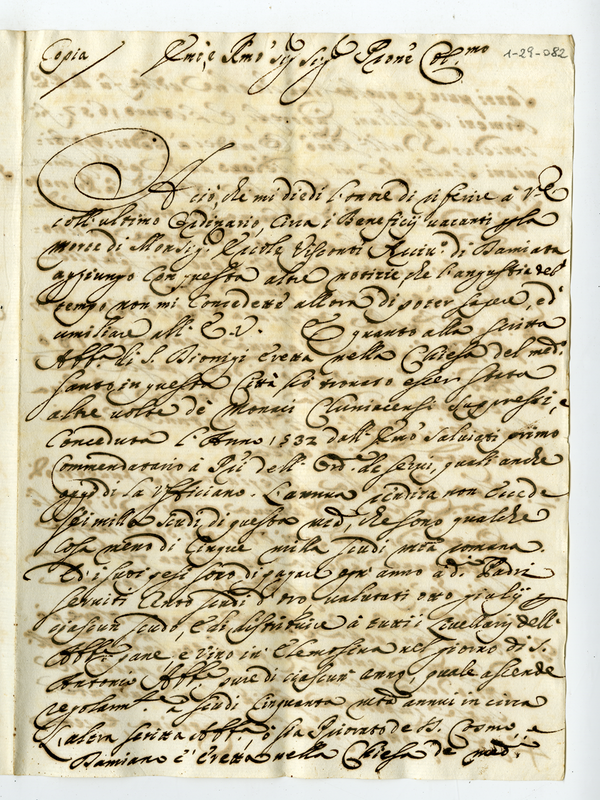 Copia
Em̃o, e Rmõ Sig.r Sig.r Prõne Col.mo
1-29-082
A ciò, che mi diedi l'onore di riferire à V.E.
coll'ultimo Ordinario, circa i Beneficij vacanti p la
morte di Monsig.r Ercole Visconti Arciv.o di Damiata
aggiungo con questa altre notizie, che l'angustia del
tempo non mi concedette allora di poter sapere, ed
umiliare all' E.V. E quanto alla scritta
Abb.a di S. Dionigi eretta nella Chiesa del med.o
Santo in questa Città hò trovato esser stata
altre volte de' Monaci Cluniacensi soppressi, e
conceduta l'Anno 1532 dall' Emõ Salviati primo
Commendatario à PP. dell' Ord.e de Servi, quali anche
oggidì la Ufficiano. L'annua rendita non eccede
sei milla scudi di questa mon.a, che sono qualche
cosa meno di cinque milla scudi mta romana.
Ed i suoi pesi sono di pagare ogn' anno à d.i Padri
Serviti cento scudi d'oro valutati otto giulij p
ciascun scudo, e di distribuire à tutti i Livellarj dell'
Abb.a pane e vino in elemosina nel giorno di S.
Antonio Abb.e pure di ciascun anno, quale ascende
regolarm.te à scudi cinquanta mta annui in circa
L'altra scritta Abb.a, ò sia Priorato de S. Cosmo, e
Damiano è eretta nella Chiesa de' med.i